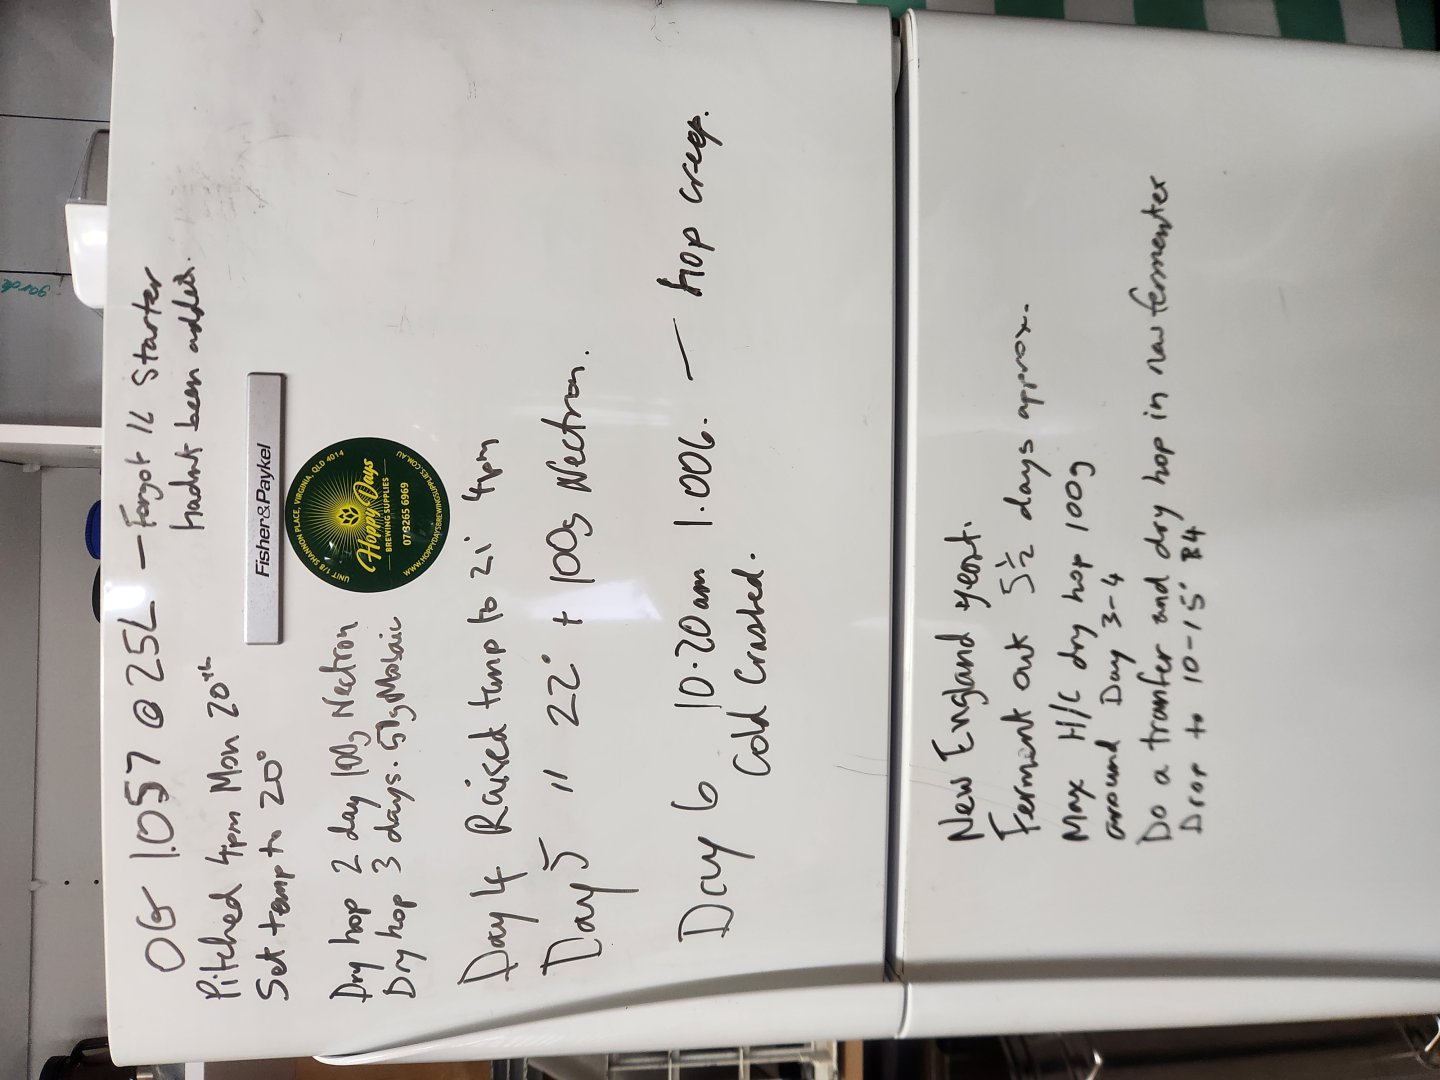 OG 1.057 @ 25L — Forgot 1L starter
hadnt been added.
Pitched 4pm Mon 20th
Set temp to 20°
Fisher&Paykel
UNIT 1/8 SHANNON PLACE, VIRGINIA, QLD 4014
Hoppy Days
BREWING SUPPLIES
07 3265 6969
WWW.HOPPYDAYSBREWINGSUPPLIES.COM.AU
Dry hop 2 day 100g Nectron
Dry hop 3 days. 50g Mosaic
Day 4 Raised temp to 21° 4pm
Day 5 " 22° + 100g Nectron.
Day 6 10.20am 1.006. — hop creep.
Cold Crashed.
New England yeast.
Ferment out 5½ days approx.
Max H/C dry hop 100g
around Day 3-4
Do a transfer and dry hop in new fermenter
Drop to 10-15° B4